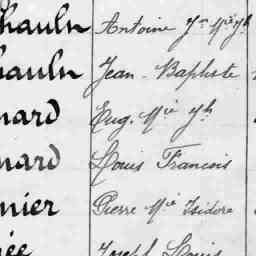 hauln Antoine Jn Mie Jh
hauln Jean-Baptiste
nard Eug. Mie Jh
nard Louis Francois
nier Pierre Mie Isidore
ée Joseph Louis